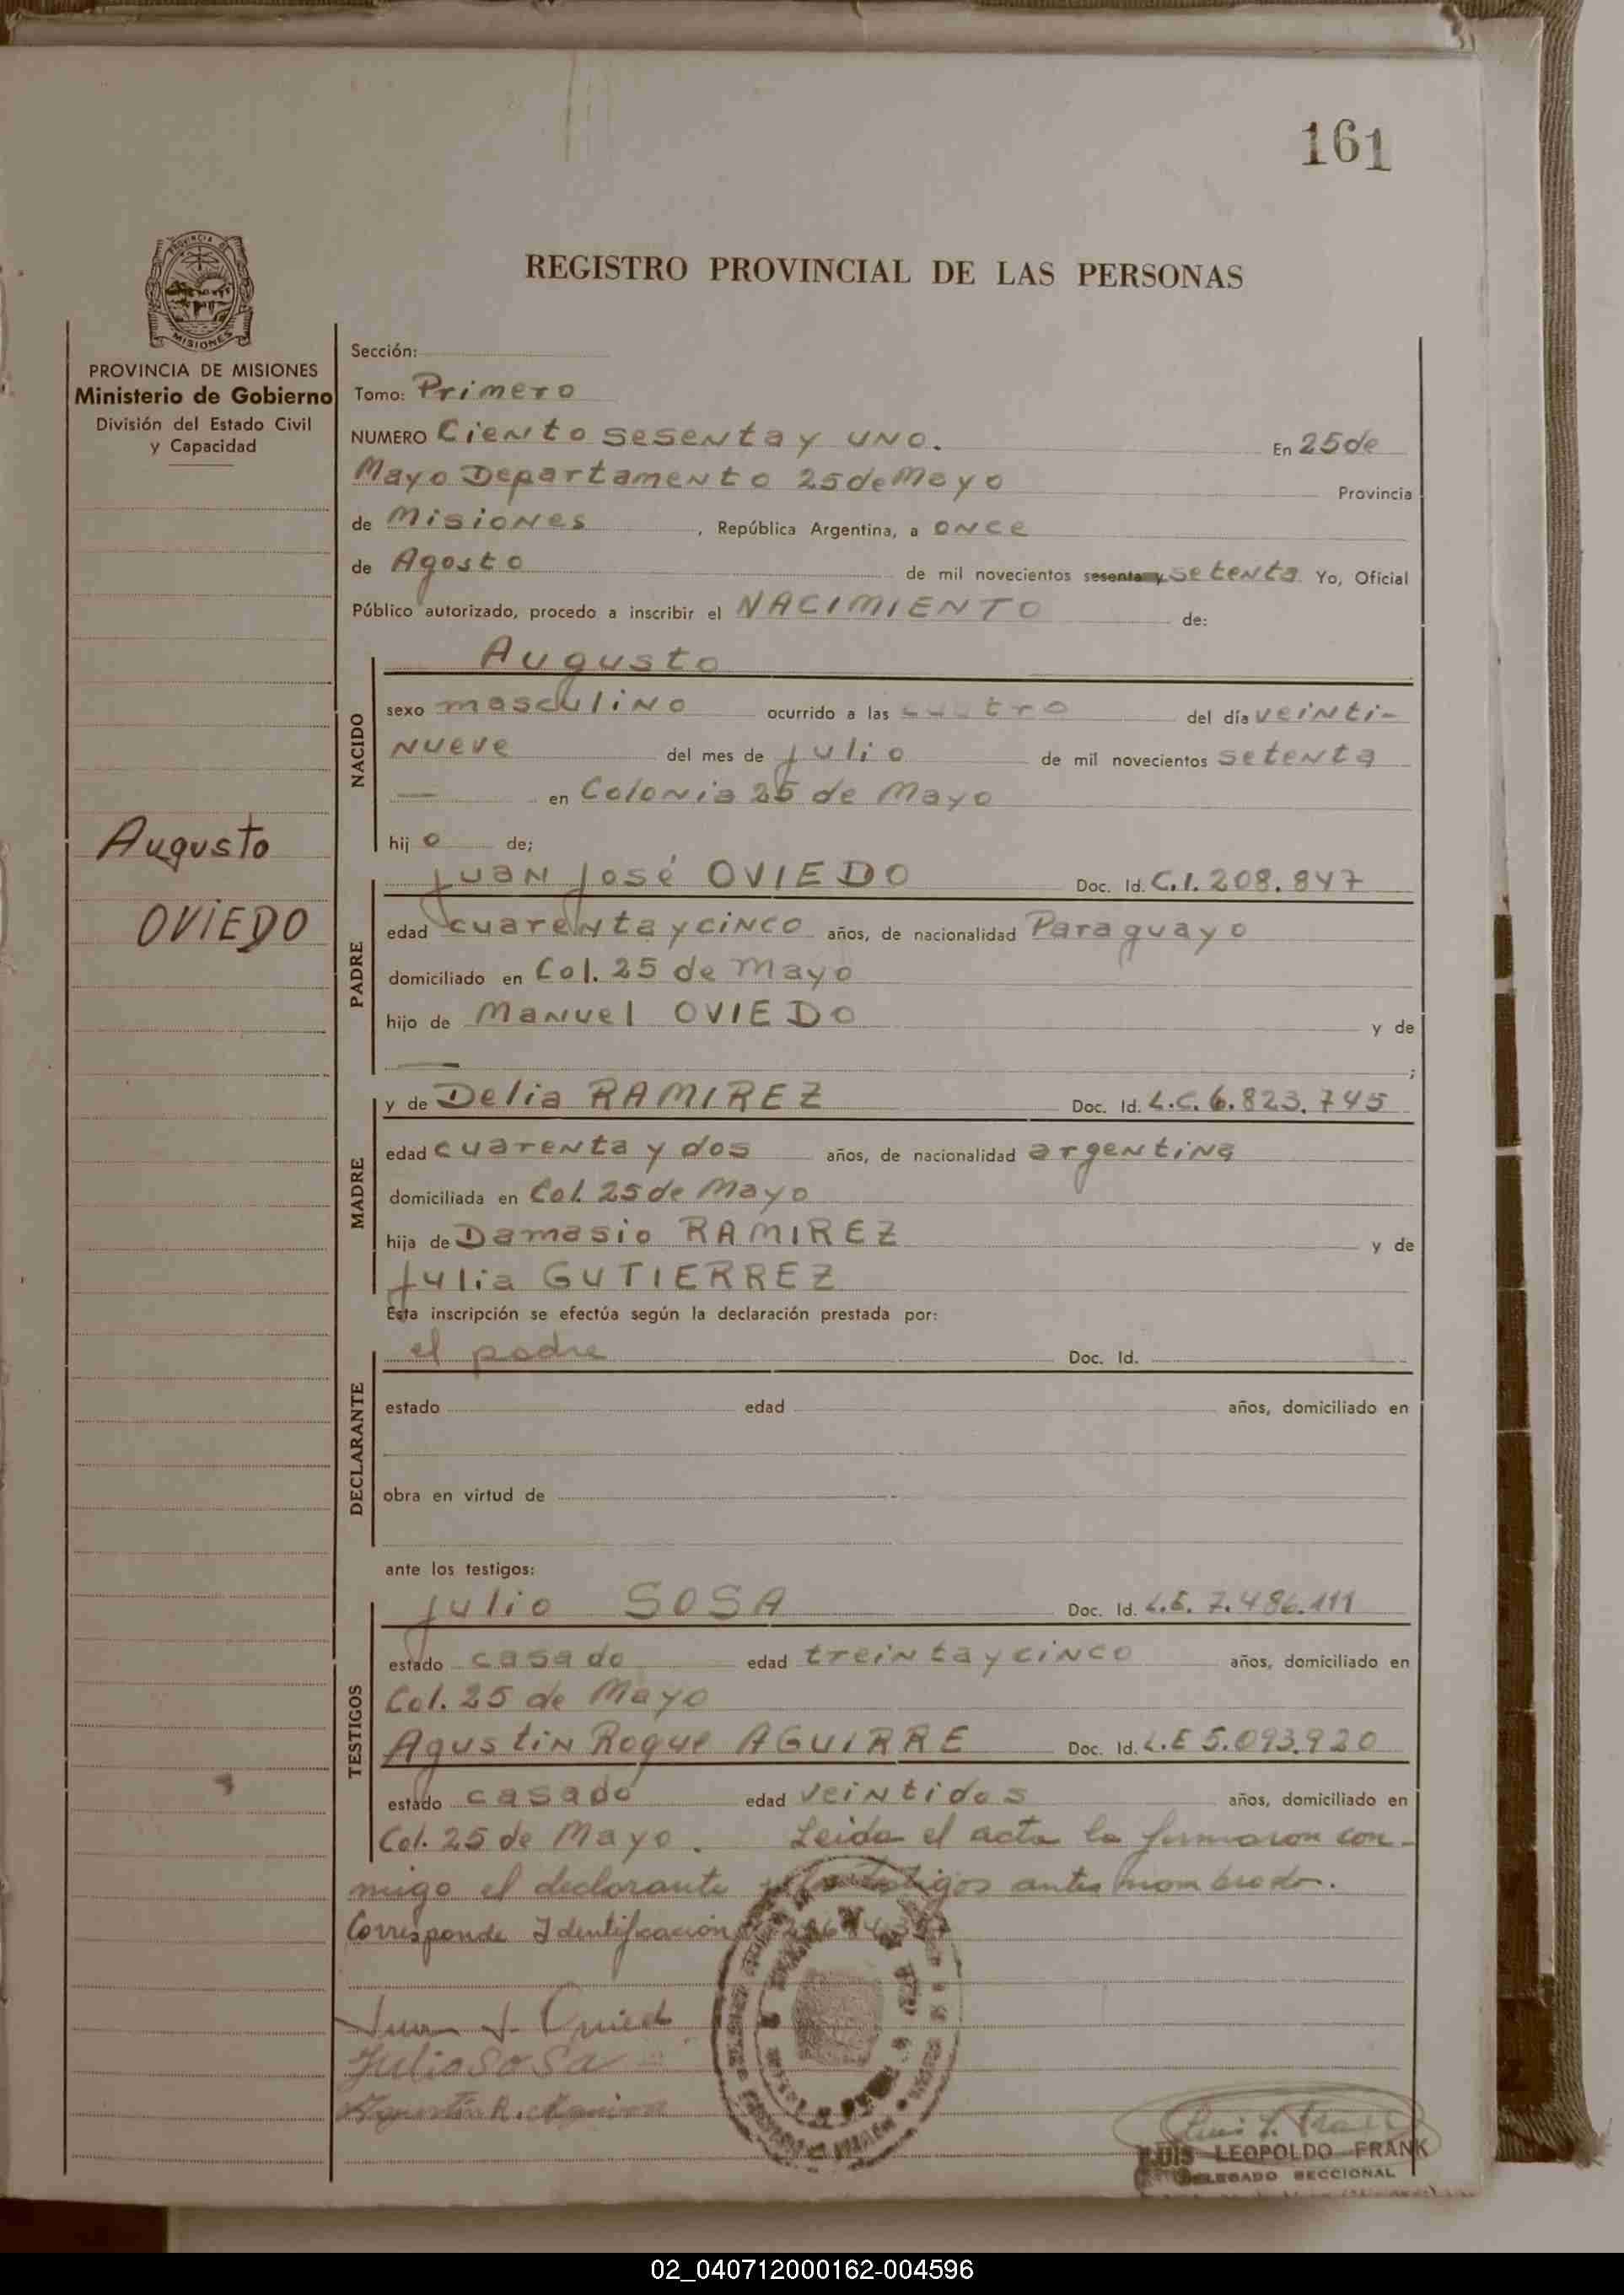 161
REGISTRO PROVINCIAL DE LAS PERSONAS
PROVINCIA DE MISIONES
PROVINCIA DE MISIONES
Ministerio de Gobierno
División del Estado Civil
y Capacidad
Augusto
OVIEDO
Sección:
Tomo: Primero
NUMERO Ciento sesenta y uno. En 25 de
Mayo Departamento 25 de Mayo Provincia
de Misiones, República Argentina, a once
de Agosto de mil novecientos sesenta y setenta Yo, Oficial
Público autorizado, procedo a inscribir el NACIMIENTO de:
Augusto
NACIDO
sexo masculino ocurrido a las cuatro del día veinti-
nueve del mes de julio de mil novecientos setenta
— en Colonia 25 de Mayo
hij o de;
Juan José OVIEDO Doc. Id. C.I. 208.847
PADRE
edad cuarenta y cinco años, de nacionalidad Paraguayo
domiciliado en Col. 25 de Mayo
hijo de Manuel OVIEDO y de
— ;
y de Delia RAMIREZ Doc. Id. L.C. 6.823.745
MADRE
edad cuarenta y dos años, de nacionalidad argentina
domiciliada en Col. 25 de Mayo
hija de Damasio RAMIREZ y de
Julia GUTIERREZ
Esta inscripción se efectúa según la declaración prestada por:
el padre Doc. Id.
DECLARANTE
estado edad años, domiciliado en
obra en virtud de
ante los testigos:
Julio SOSA Doc. Id. L.E. 7.486.111
TESTIGOS
estado casado edad treinta y cinco años, domiciliado en
Col. 25 de Mayo
Agustin Roque AGUIRRE Doc. Id. L.E 5.093.920
estado casado edad veintidos años, domiciliado en
Col. 25 de Mayo. Leida el acta la firmaron con-
migo el declarante y los testigos antes nombrado.
Corresponde Identificación
Juan J. Oviedo
Julio Sosa
Agustin R. Aguirre
LUIS LEOPOLDO FRANK
DELEGADO SECCIONAL
02_040712000162-004596